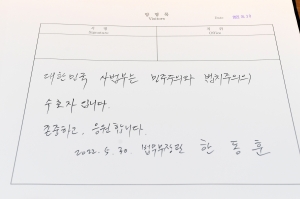 방 명 록
Visitors
Date
Signature
Office
대한민국 사법부는 민주주의와 법치주의의
수호자입니다.
존중하고, 응원합니다.
2022. 5. 30 법무부장관 한 동 훈